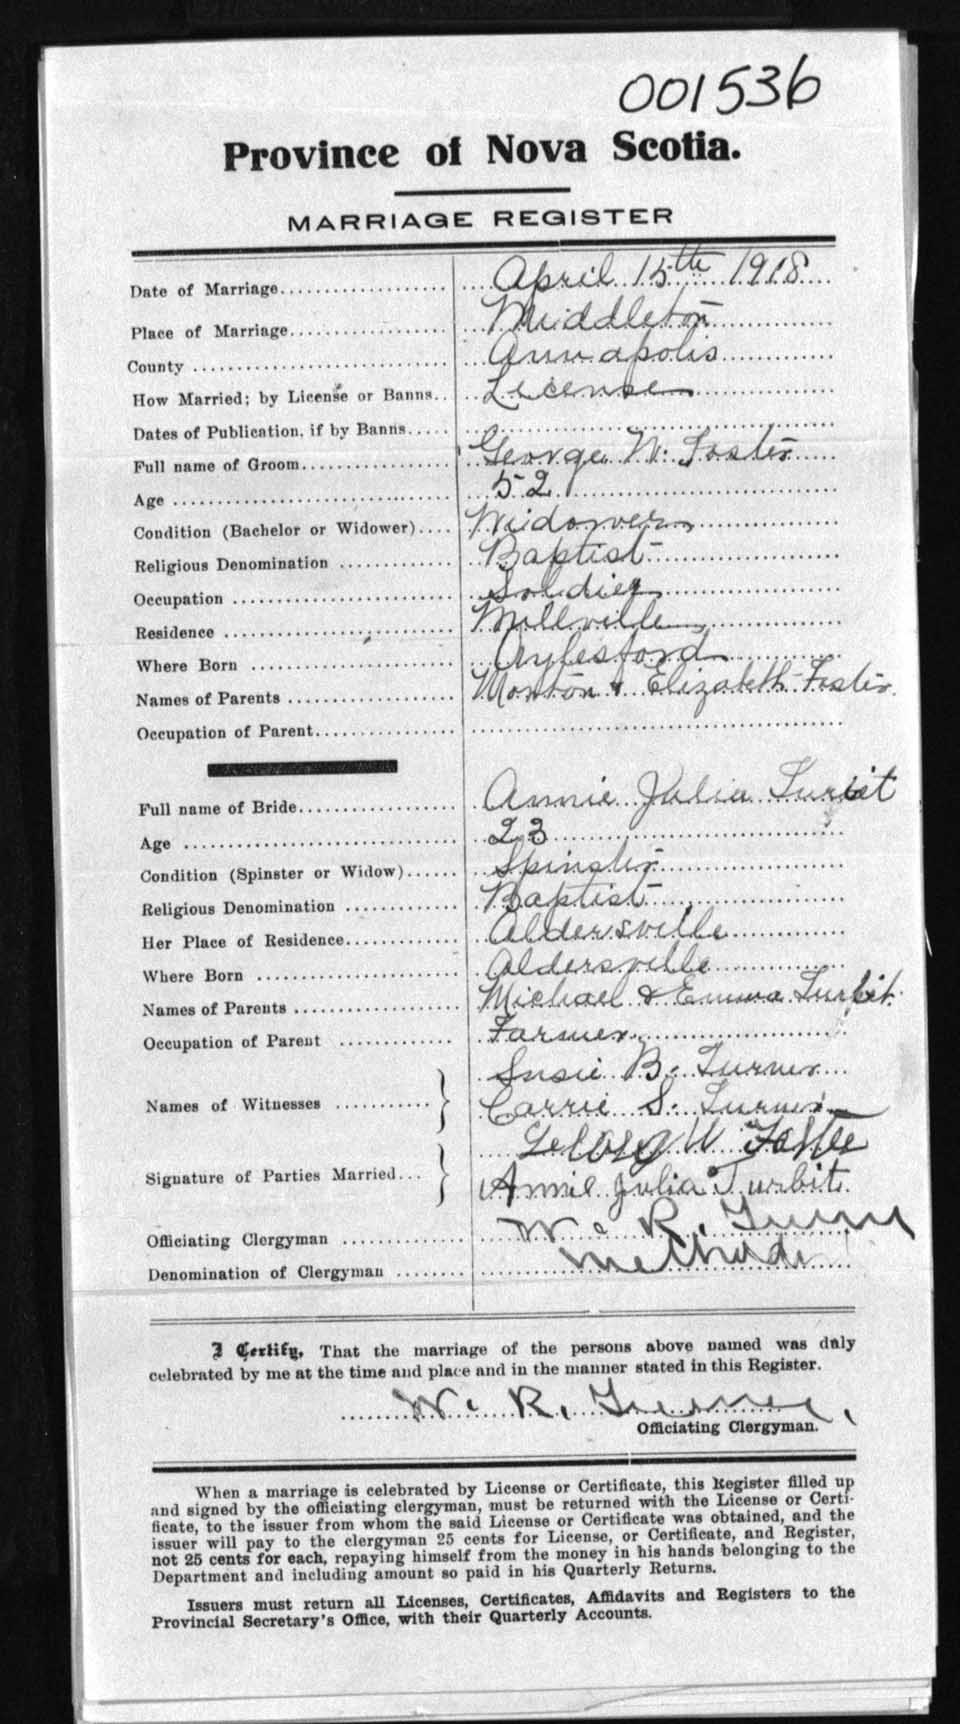 001536
Province of Nova Scotia.
MARRIAGE REGISTER
Date of Marriage April 15th 1918
Place of Marriage Middleton
County Annapolis
How Married; by License or Banns License
Dates of Publication, if by Banns
Full name of Groom George W. Foster
Age 52
Condition (Bachelor or Widower) Widower
Religious Denomination Baptist
Occupation Soldier
Residence Millville
Where Born Aylesford
Names of Parents & Elizabeth Foster
Occupation of Parent
Full name of Bride Annie Julia Turbit
Age 23
Condition (Spinster or Widow) Spinster
Religious Denomination Baptist
Her Place of Residence Aldersville
Where Born Aldersville
Names of Parents Michael & Emma Turbit
Occupation of Parent Farmer
Susie B. Turner
Names of Witnesses Carrie S. Turner
George W Foster
Signature of Parties Married Annie Julia Turbit
Officiating Clergyman W. R. Turner
Denomination of Clergyman Methodist
I Certify, That the marriage of the persons above named was duly
celebrated by me at the time and place and in the manner stated in this Register.
W. R. Turner
Officiating Clergyman.
When a marriage is celebrated by License or Certificate, this Register filled up
and signed by the officiating clergyman, must be returned with the License or Certi-
ficate, to the issuer from whom the said License or Certificate was obtained, and the
issuer will pay to the clergyman 25 cents for License, or Certificate, and Register,
not 25 cents for each, repaying himself from the money in his hands belonging to the
Department and including amount so paid in his Quarterly Returns.
Issuers must return all Licenses, Certificates, Affidavits and Registers to the
Provincial Secretary's Office, with their Quarterly Accounts.